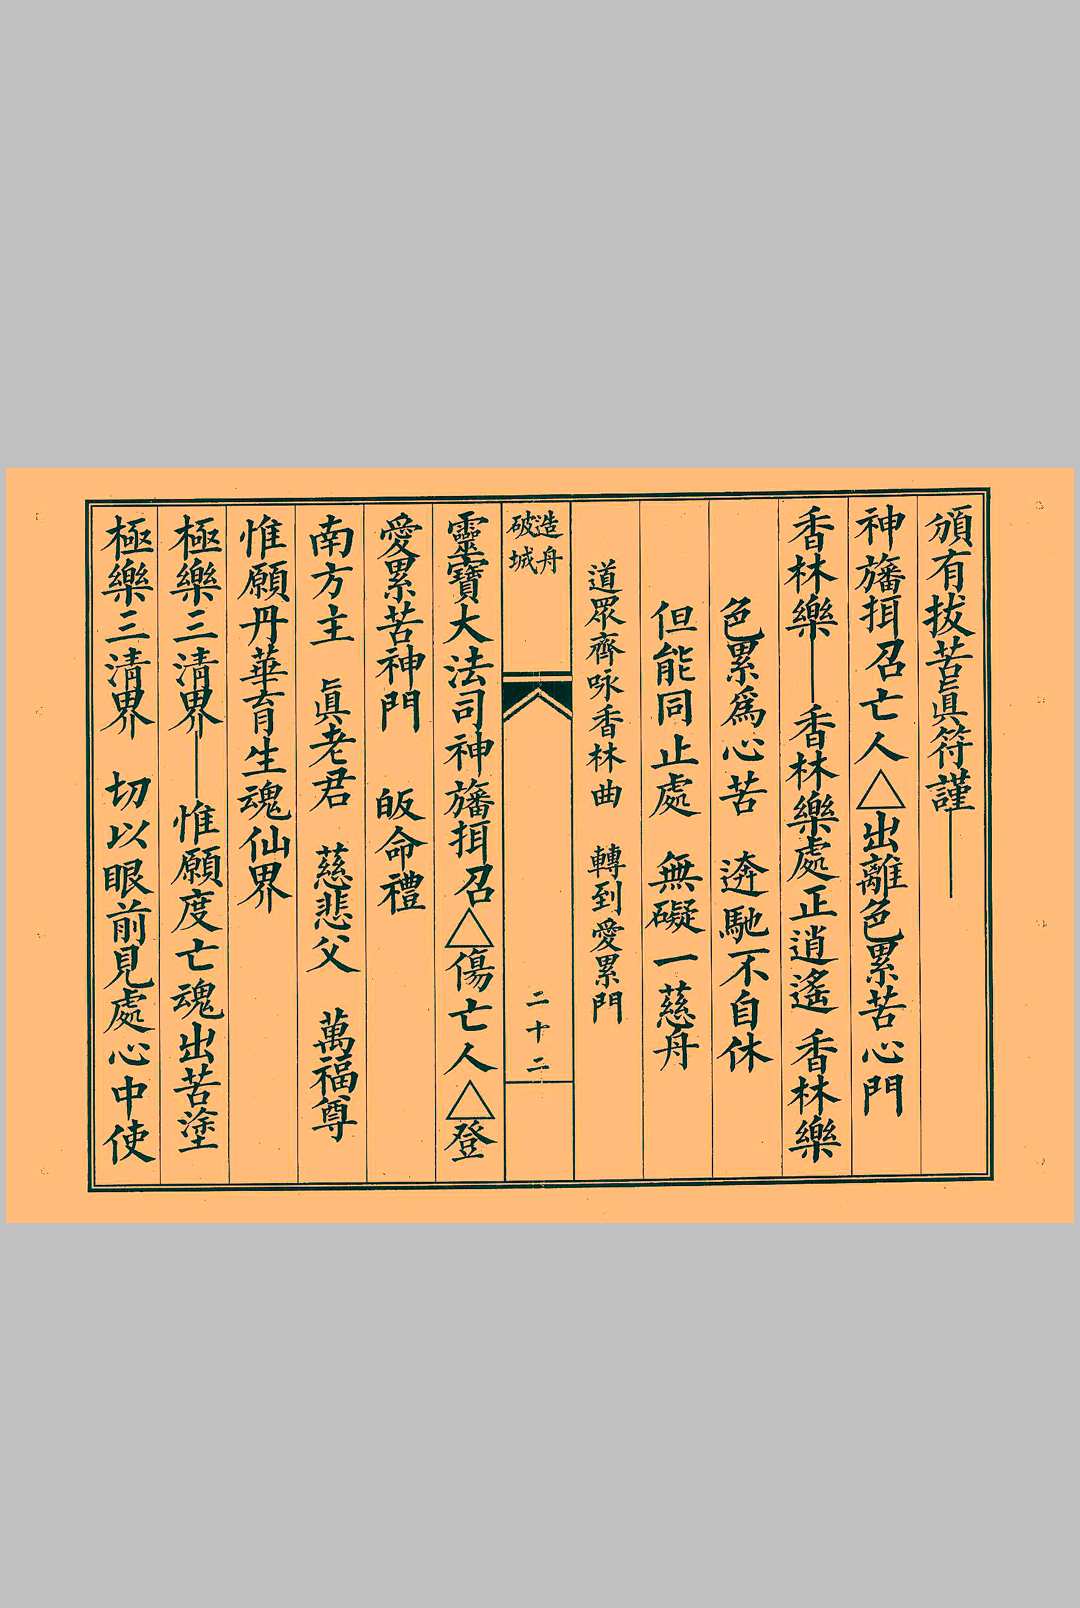 頒有拔苦眞符謹——
神旛招召亡人△出離色累苦心門
香林樂——香林樂處正逍遙 香林樂
色累爲心苦 逩馳不自休
但能同止處 無礙一慈舟
道眾齊咏香林曲 轉到愛累門
造舟
破城
二十二
靈寶大法司神旛招召△傷亡人△登
愛累苦神門 皈命禮
南方主 眞老君 慈悲父 萬福尊
惟願丹華育生魂仙界
極樂三清界——惟願度亡魂出苦塗
極樂三清界 切以眼前見處心中使